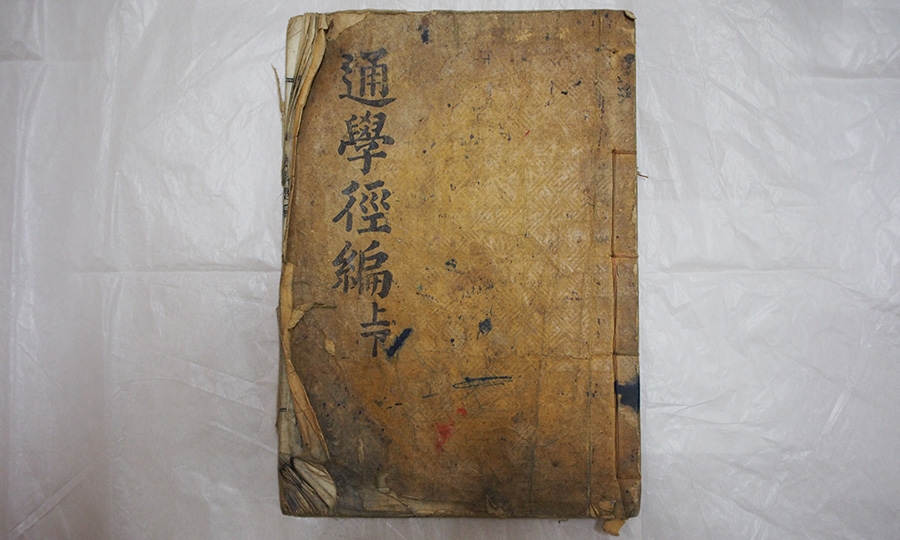 通學徑編上下